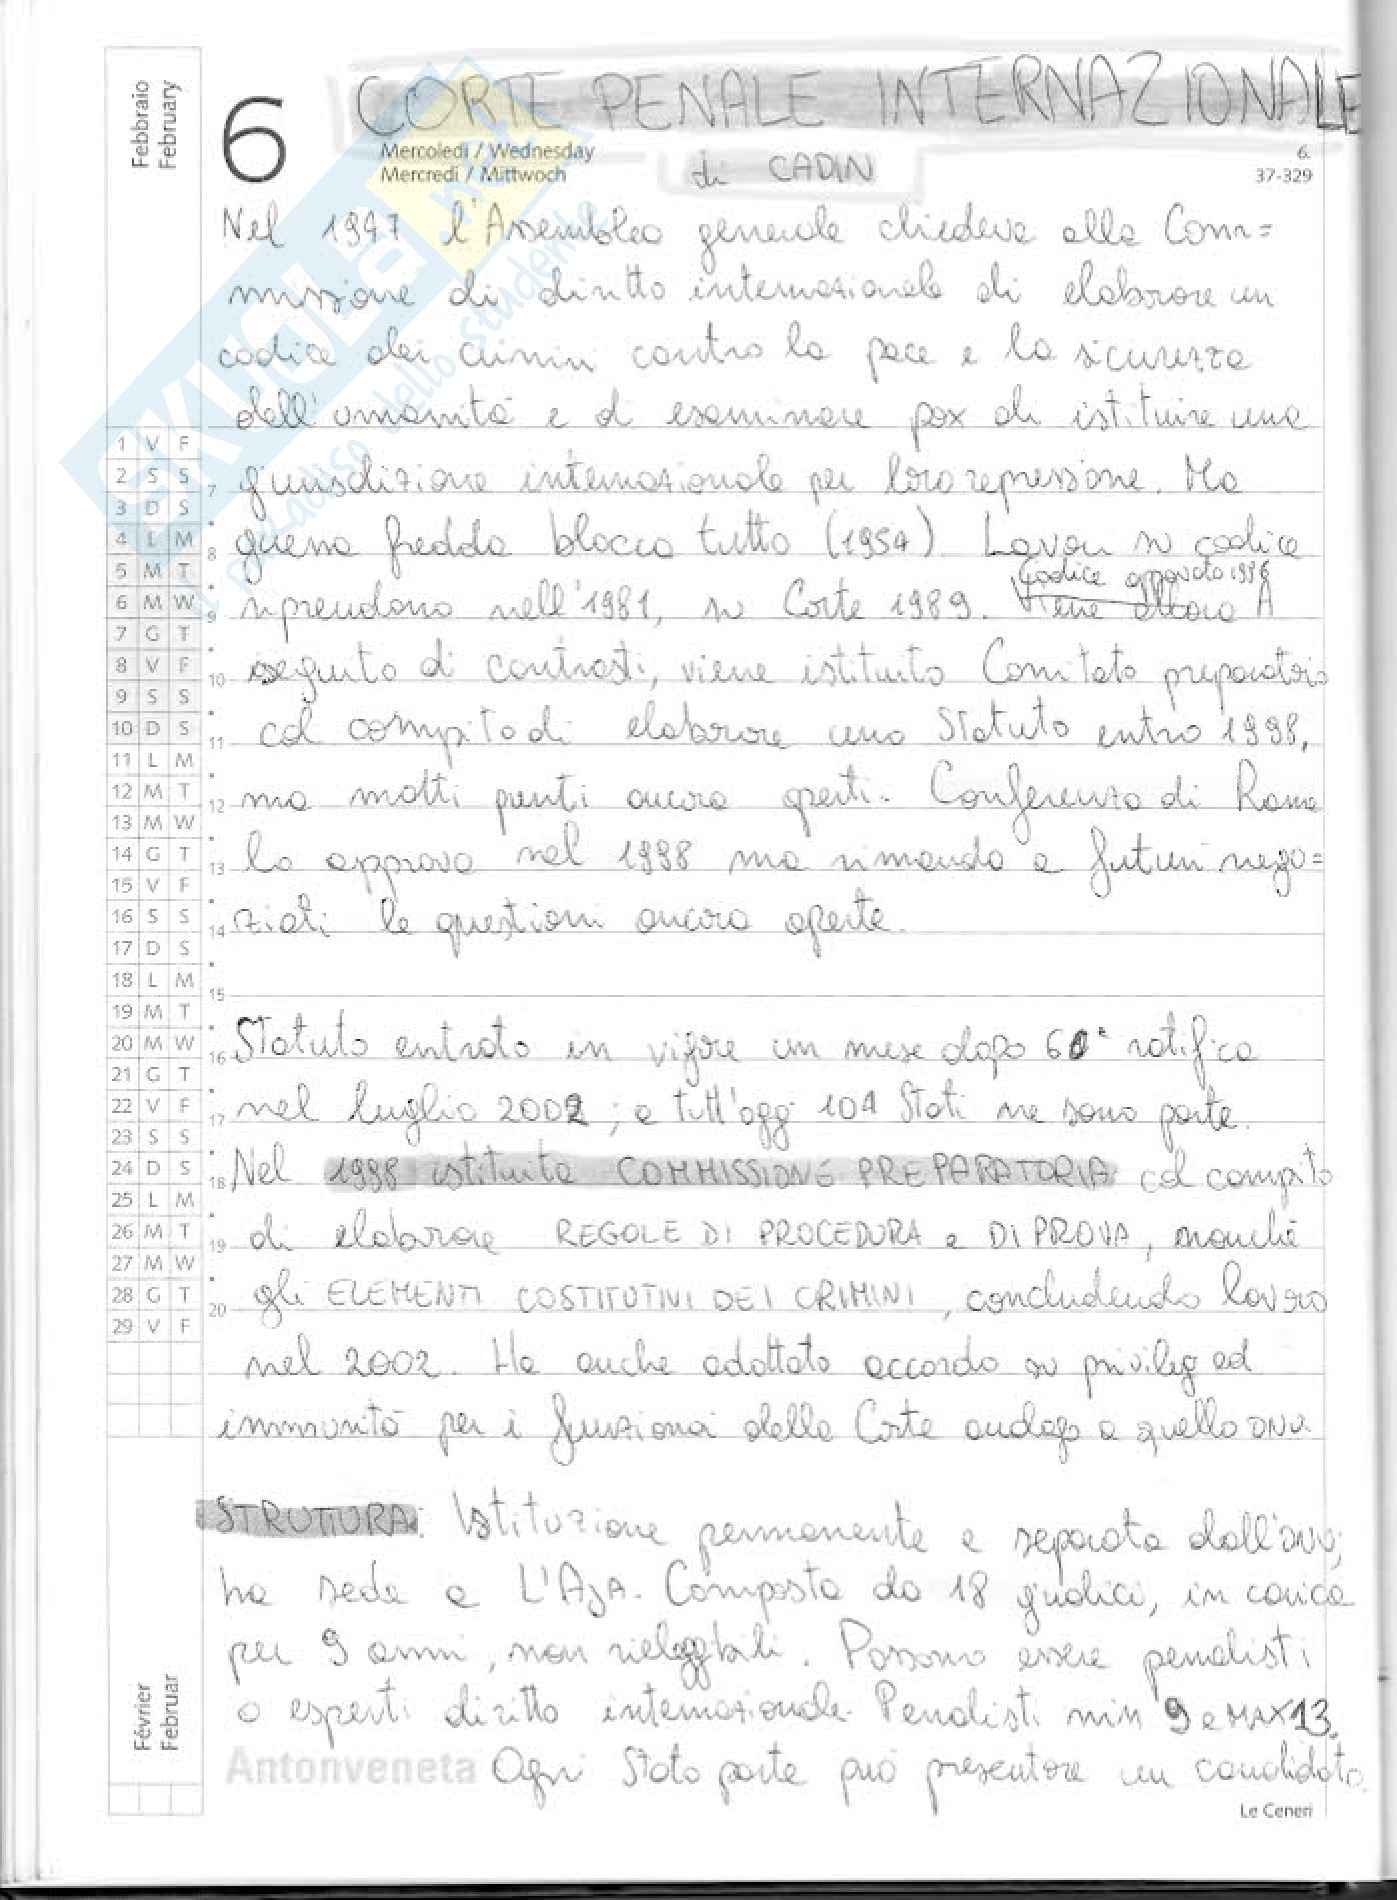 Febbraio
February
6
CORTE PENALE INTERNAZIONALE
Mercoledì / Wednesday
Mercredi / Mittwoch
di CADIN
6.
37-329
SKUOLA.net
il paradiso dello studente
Nel 1947 l'Assemblea generale chiedeva alla Com=
missione di diritto internazionale di elaborare un
codice dei crimini contro la pace e la sicurezza
dell'umanità e di esaminare pox di istituire una
giurisdizione internazionale per loro repressione. Ma
guerra fredda blocca tutto (1954). Lavori su codice
Codice approvato 1996
riprendono nell'1981, su Corte 1989. Viene allora A
seguito di contrasti, viene istituito Comitato preparatorio
col compito di elaborare uno Statuto entro 1998,
ma molti punti ancora aperti. Conferenza di Roma
lo approva nel 1998 ma rimanda a futuri nego=
ziati le questioni ancora aperte.
Statuto entrato in vigore un mese dopo 60ª ratifica
nel luglio 2002; a tutt'oggi 104 Stati ne sono parte.
Nel 1998 istituita COMMISSIONE PREPARATORIA col compito
di elaborare REGOLE DI PROCEDURA e DI PROVA, nonché
gli ELEMENTI COSTITUTIVI DEI CRIMINI, concludendo lavoro
nel 2002. Ha anche adottato accordo su privileg ed
immunità per i funzionari della Corte analogo a quello ONU.
STRUTTURA: Istituzione permanente e separata dall'ONU;
ha sede a L'AJA. Composta da 18 giudici, in carica
per 9 anni, non rieleggibili. Possono essere penalisti
o esperti diritto internazionale. Penalisti min 9 e MAX 13.
Antonveneta Ogni Stato parte può presentare un candidato.
Le Ceneri
1 V F
2 S S
3 D S
4 L M
5 M T
6 M W
7 G T
8 V F
9 S S
10 D S
11 L M
12 M T
13 M W
14 G T
15 V F
16 S S
17 D S
18 L M
19 M T
20 M W
21 G T
22 V F
23 S S
24 D S
25 L M
26 M T
27 M W
28 G T
29 V F
7
8
9
10
11
12
13
14
15
16
17
18
19
20
Février
Februar